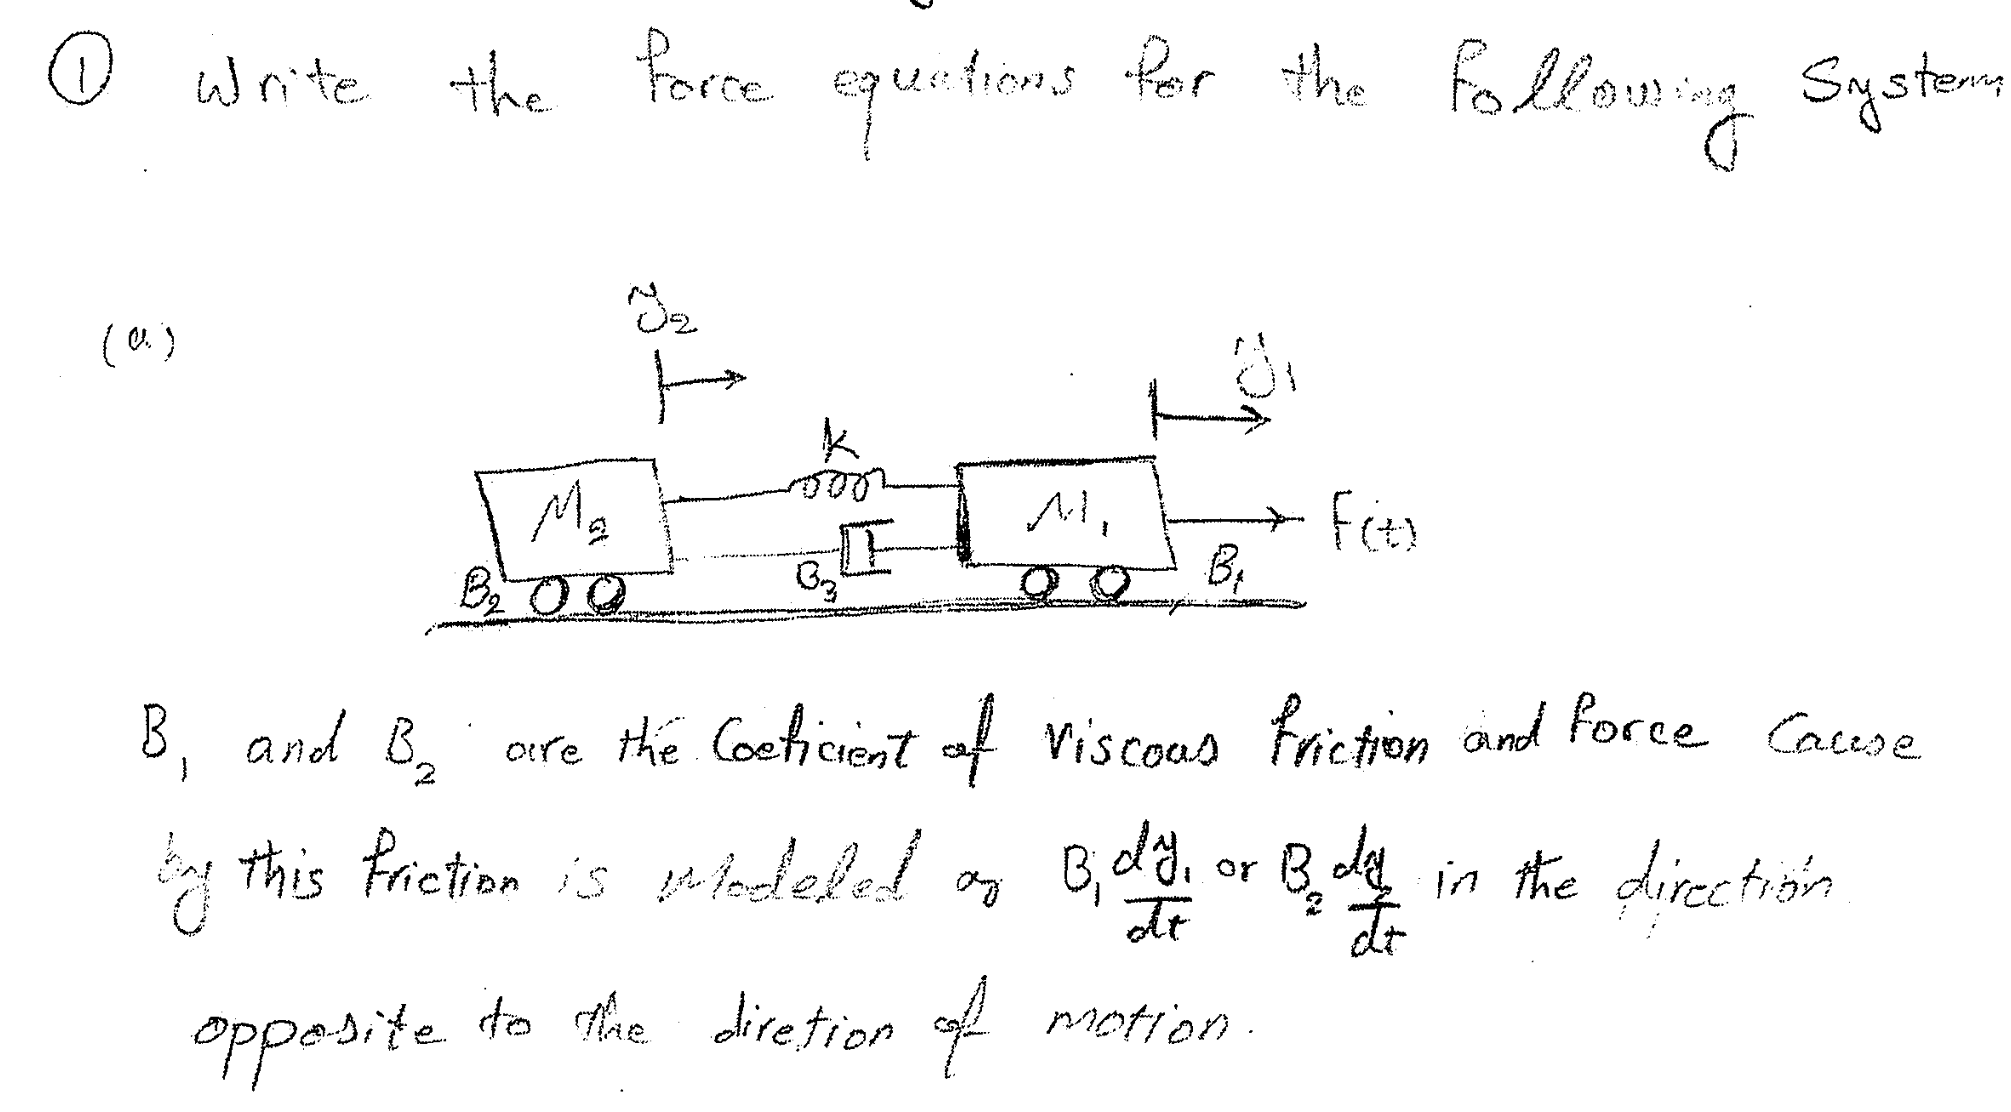 ① Write the force equations for the following System
(a)
y₂
y₁
K
M₂
M₁
F(t)
B₂
B₃
B₁
B₁ and B₂ are the Coeficient of viscous friction and force Cause
by this friction is Modeled as B₁ dy₁/dt or B₂ dy₂/dt in the direction
opposite to the diretion of motion.